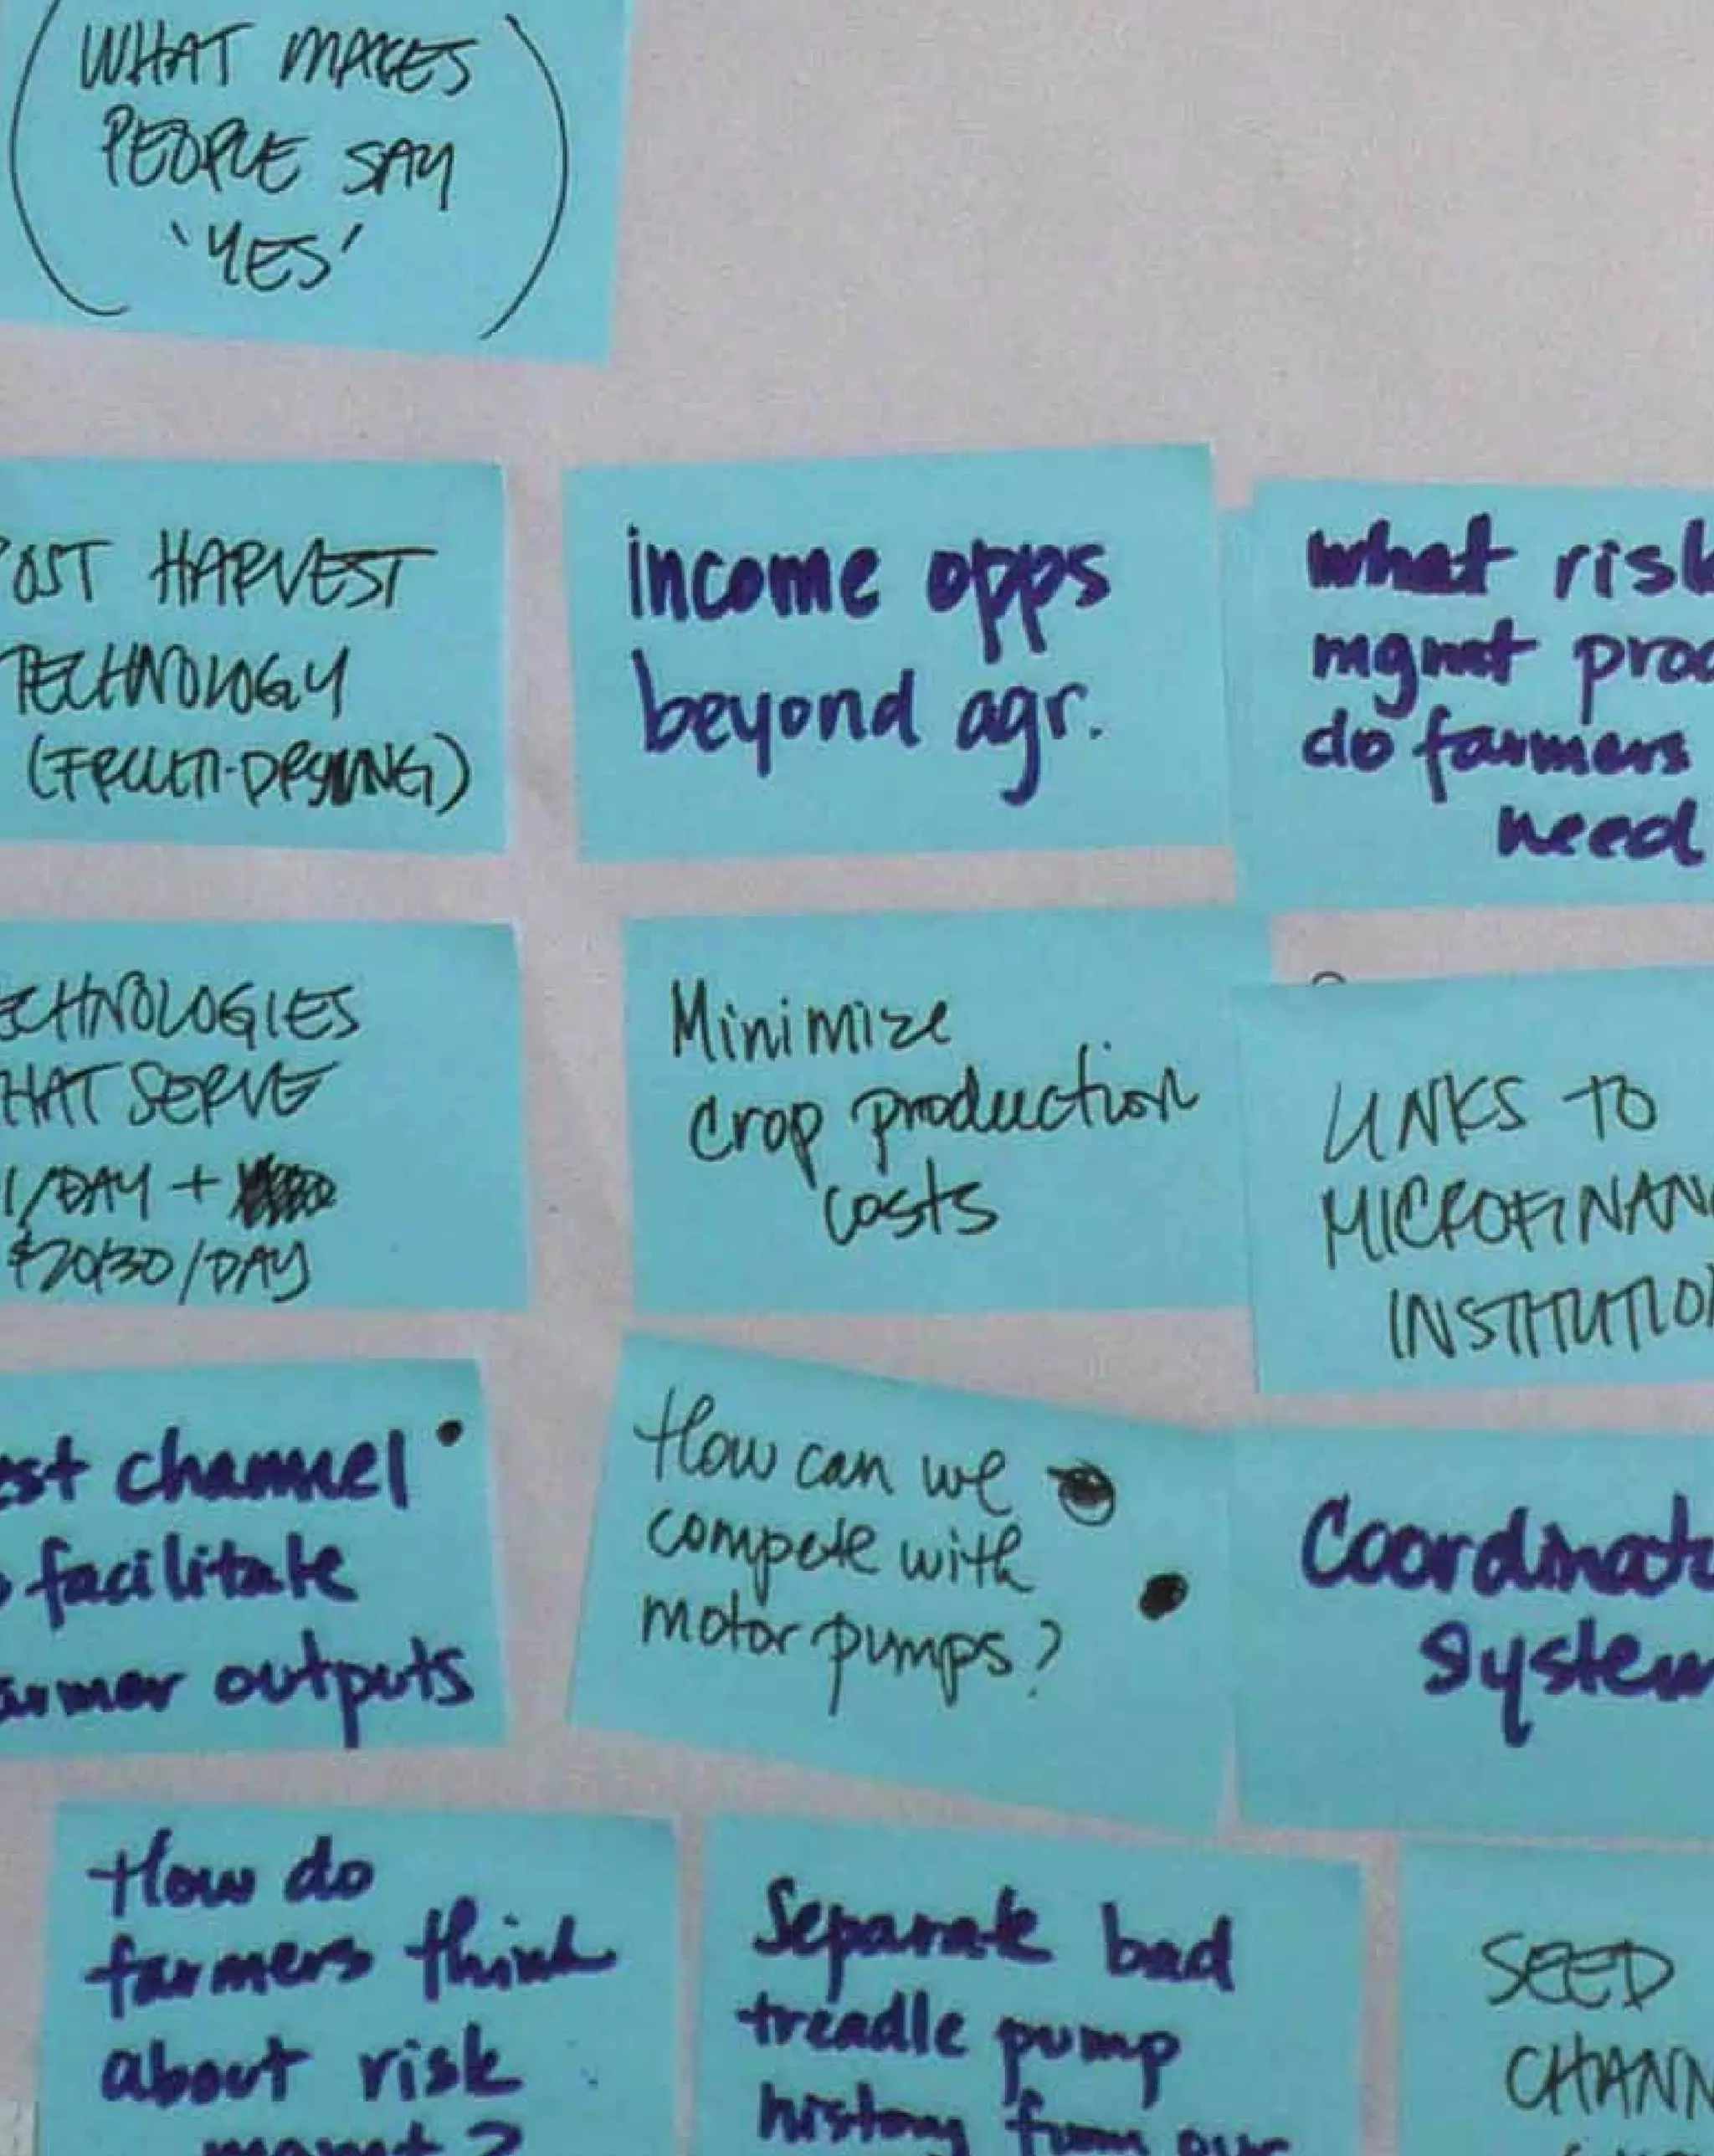 WHAT MAKES
PEOPLE SAY
'YES'
POST HARVEST
TECHNOLOGY
(FRUIT-DRYING)
income opps
beyond agr.
what risk
mgmt prod
do farmers
need
ECHNOLOGIES
HAT SERVE
1/DAY +
$20/30/DAY
Minimize
crop production
costs
LINKS TO
MICROFINANC
INSTITUTIO
est channel
o facilitate
armer outputs
How can we
compete with
motor pumps?
Coordinat
System
How do
farmers think
about risk
mgmt?
Separate bad
treadle pump
history from our
SEED
CHANN